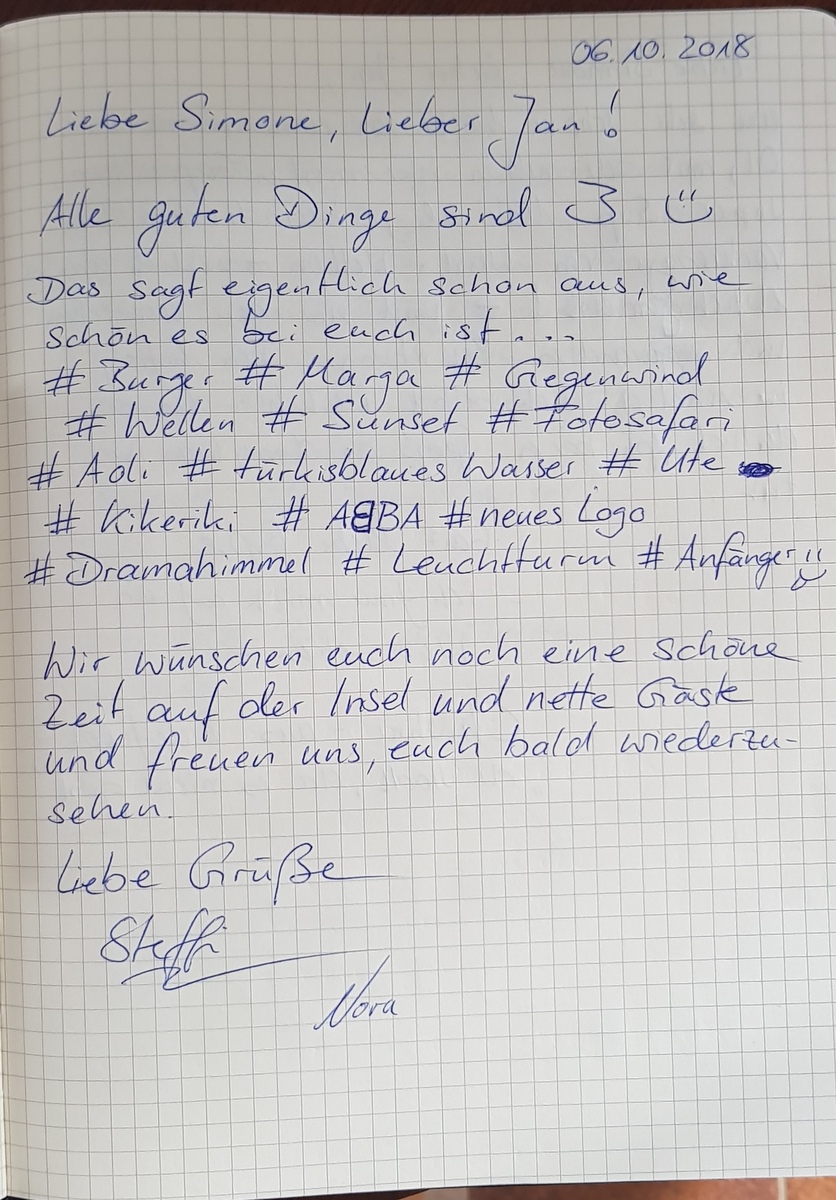 06.10.2018
Liebe Simone, Lieber Jan!
Alle guten Dinge sind 3 ☺
Das sagt eigentlich schon aus, wie
schön es bei euch ist....
# Burger # Marga # Gegenwind
# Wellen # Sunset # Fotosafari
# Aoli # türkisblaues Wasser # Ute
# Kikeriki # ABBA # neues Logo
# Dramahimmel # Leuchtturm # Anfänger ☺
Wir wünschen euch noch eine schöne
Zeit auf der Insel und nette Gäste
und freuen uns, euch bald wiederzu-
sehen.
Liebe Grüße
Steffi
Nora